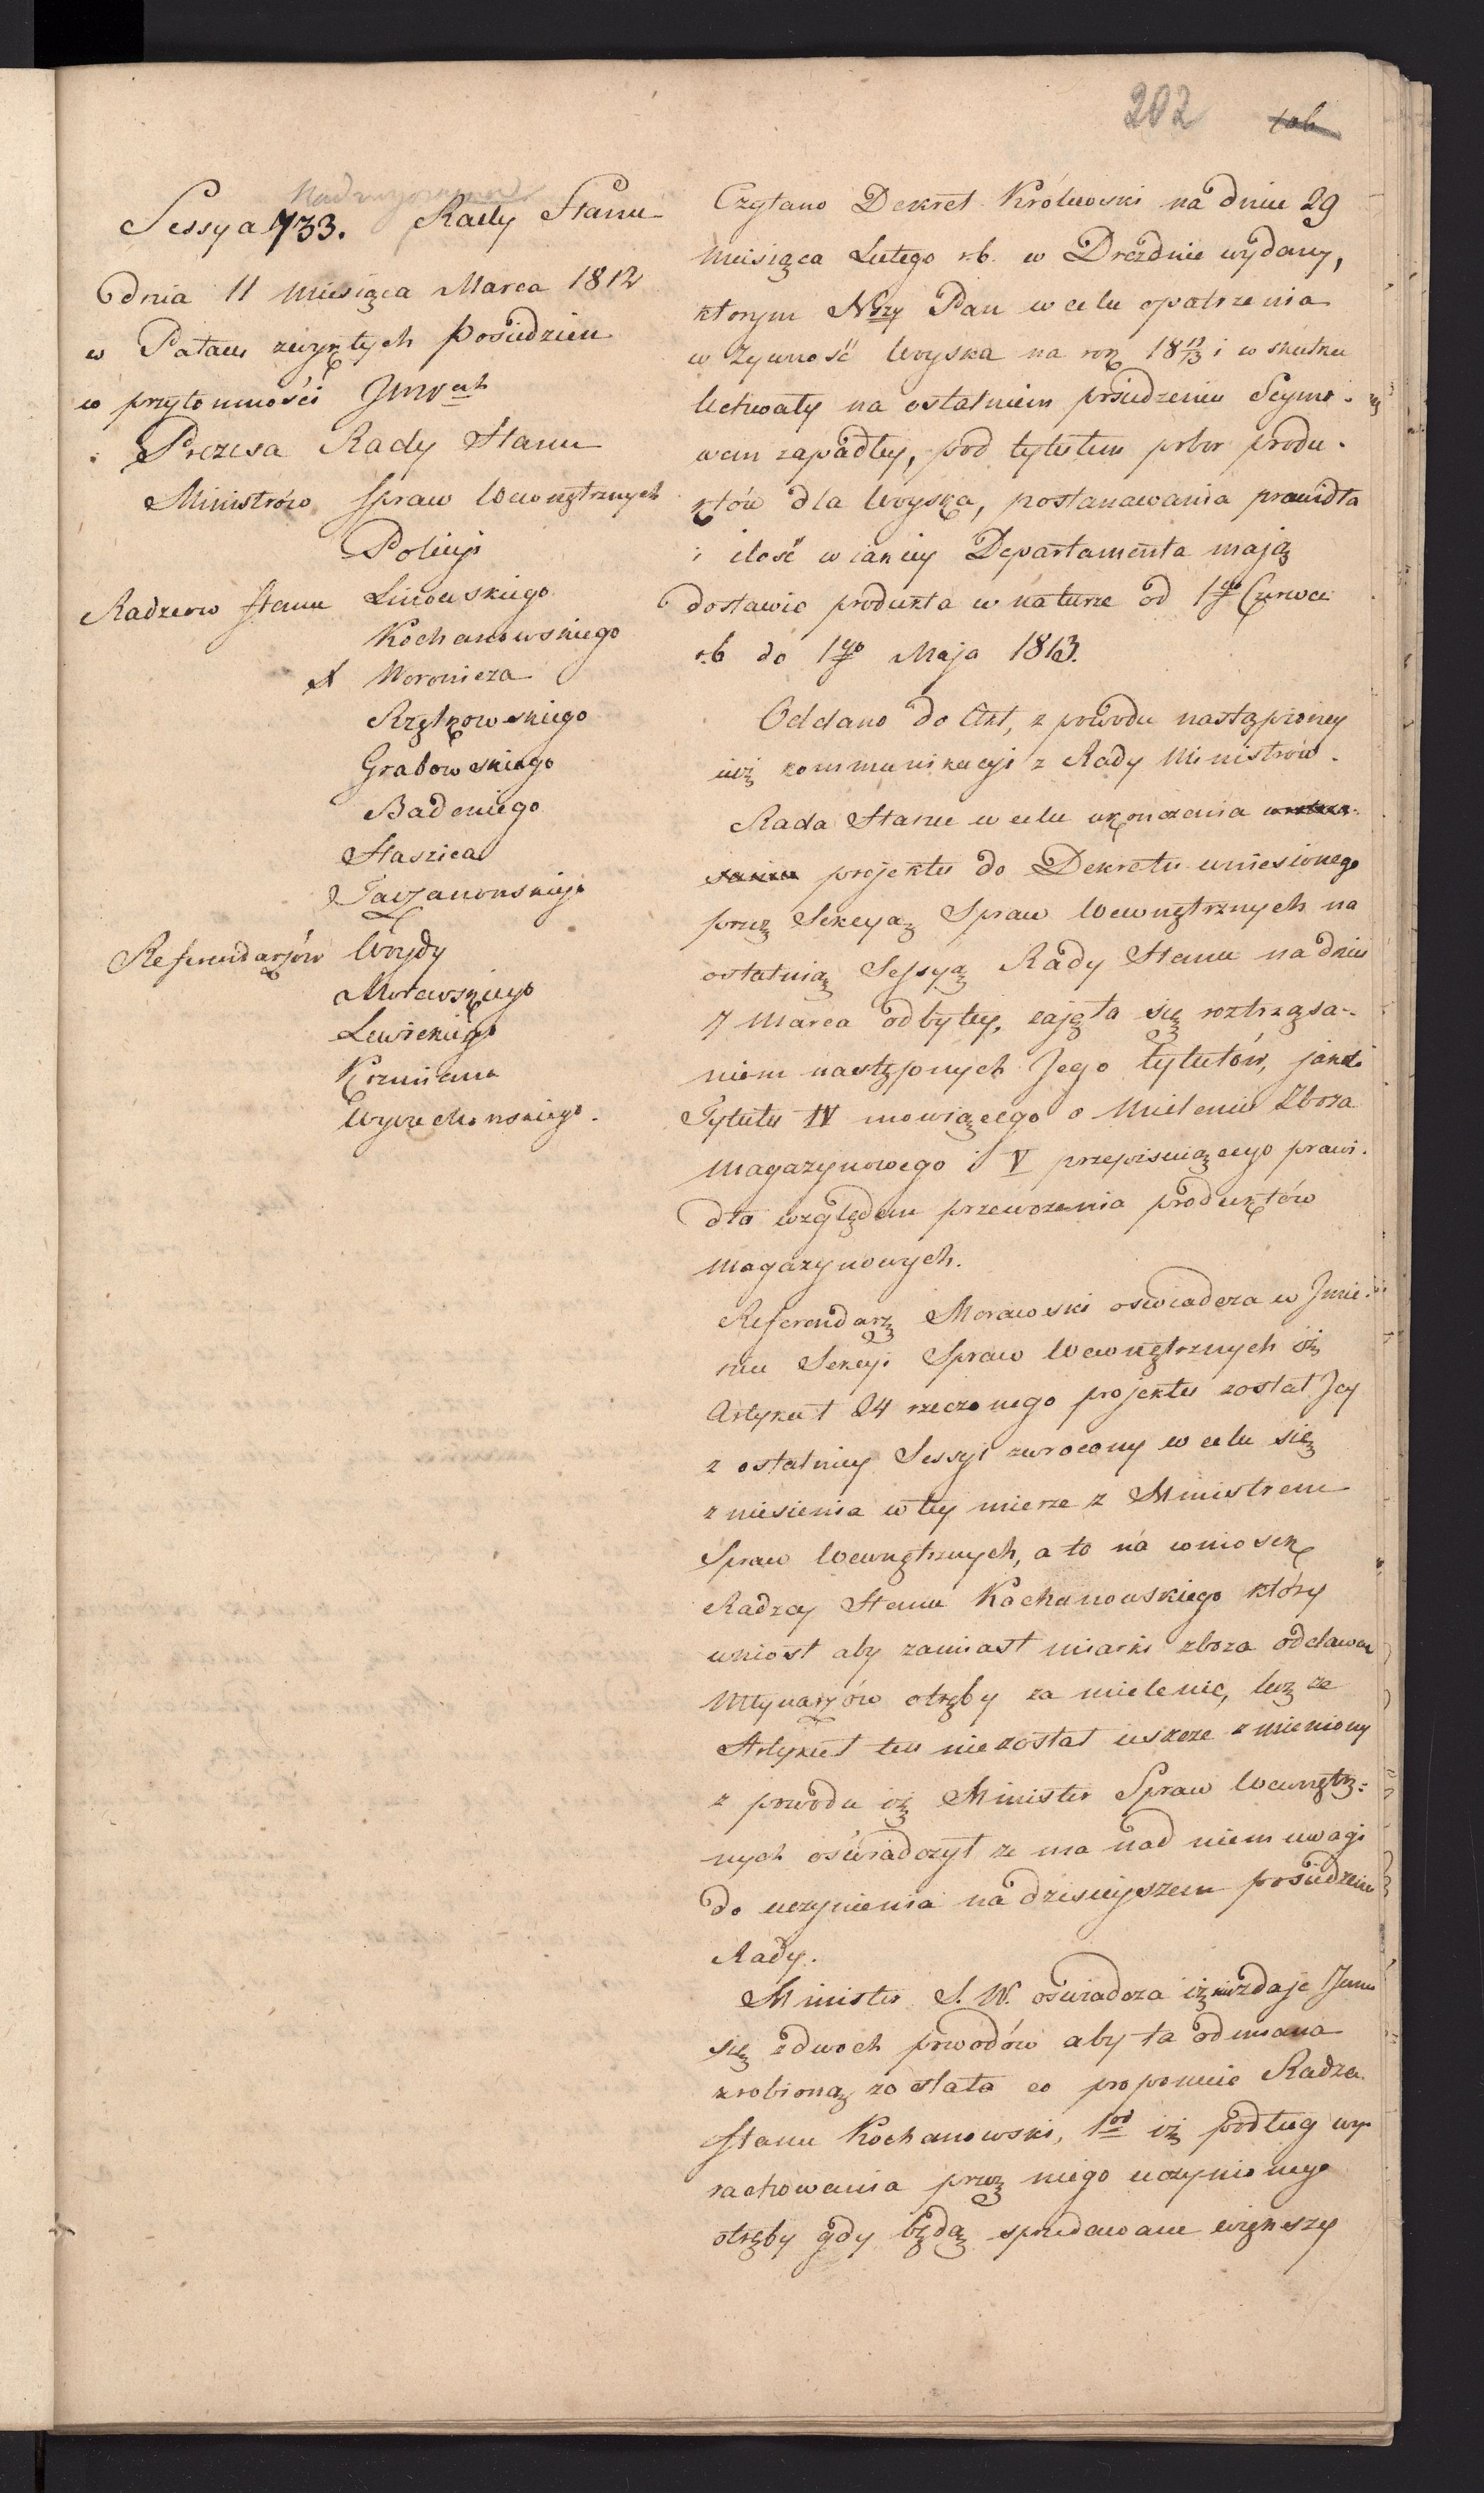 202
Nadzwyczayna
Sessya 733. Rady Stanu
dnia 11 Miesiąca Marca 1812
w Pałacu zwykłych Posiedzień
w przytomności JWW
Prezesa Rady Stanu
Ministrów Spraw Wewnętrznych
Policyi
Radzców Stanu Linowskiego
Kochanowskiego
X Woronicza
Rzętkowskiego
Grabowskiego
Badeniego
Staszica
Taczanowskiego
Referendarzów Woydy
Morawskiego
Lewickiego
Kozmiana
Wyczechowskiego.
Czytano Dekret Królewski na dniu 29
Miesiąca Lutego r.b. w Dreźnie wydany,
ktorym Nszy Pan w celu opatrzenia
w żywność Woyska na rok 18 12/13 i w skutku
Uchwały na ostatniem posiedzeniu Seymo-
wem zapadłey, pod tytułem pobor produ-
któw dla Woyska, postanawania prawidła
i ilość w iakiey Departamenta mają
dostawić produkta w naturze od 1go Czerwca
r.b do 1go Maja 1813.
Oddano do Akt, z powodu nastąpioney
iuż kommunikacyi z Rady Ministrów.
Rada Stanu w celu ukończenia roztrzą-
sania projektu do Dekretu wniesionego
przez Sekcyą Spraw Wewnętrznych na
ostatnią Sessyą Rady Stanu na dniu
7 Marca odbytey, zajęła się roztrząsa-
niem następnych Jego tytułów, jako
Tytułu IV mowiącego o Mieleniu Zboża
Magazynowego i V przepisuiącego prawi-
dła względem przewozenia produktów
Magazynowych.
Referendarz Morawski oswiadcza w Jmie-
niu Sekcyi Spraw Wewnętrznych iż
Artykuł 24 rzeczonego projektu został Jey
z ostatniey Sessyi zwrocony w celu się
zniesienia w tey mierze z Ministrem
Spraw Wewnętrznych, a to na wniosek
Radzcy Stanu Kochanowskiego który
wniosł aby zamiast miarki zboza oddawać
Młynarzów otręby za mielenie, lecz ze
Artykuł ten nie został ieszcze zmieniony
z powodu iż Minister Spraw Wewnętrz-
nych oświadczył ze ma nad niem uwagi
do uczynienia na dzisieyszem posiedzeniu
Rady.
Minister S. W. oświadcza iż niezdaje Jemu
się z dwoch powodów aby ta odmiana
zrobioną została co proponuie Radzca
Stanu Kochanowski, 1od iż podług wy-
rachowania przez niego uczynionego
otręby gdy będą sprzedawane większy